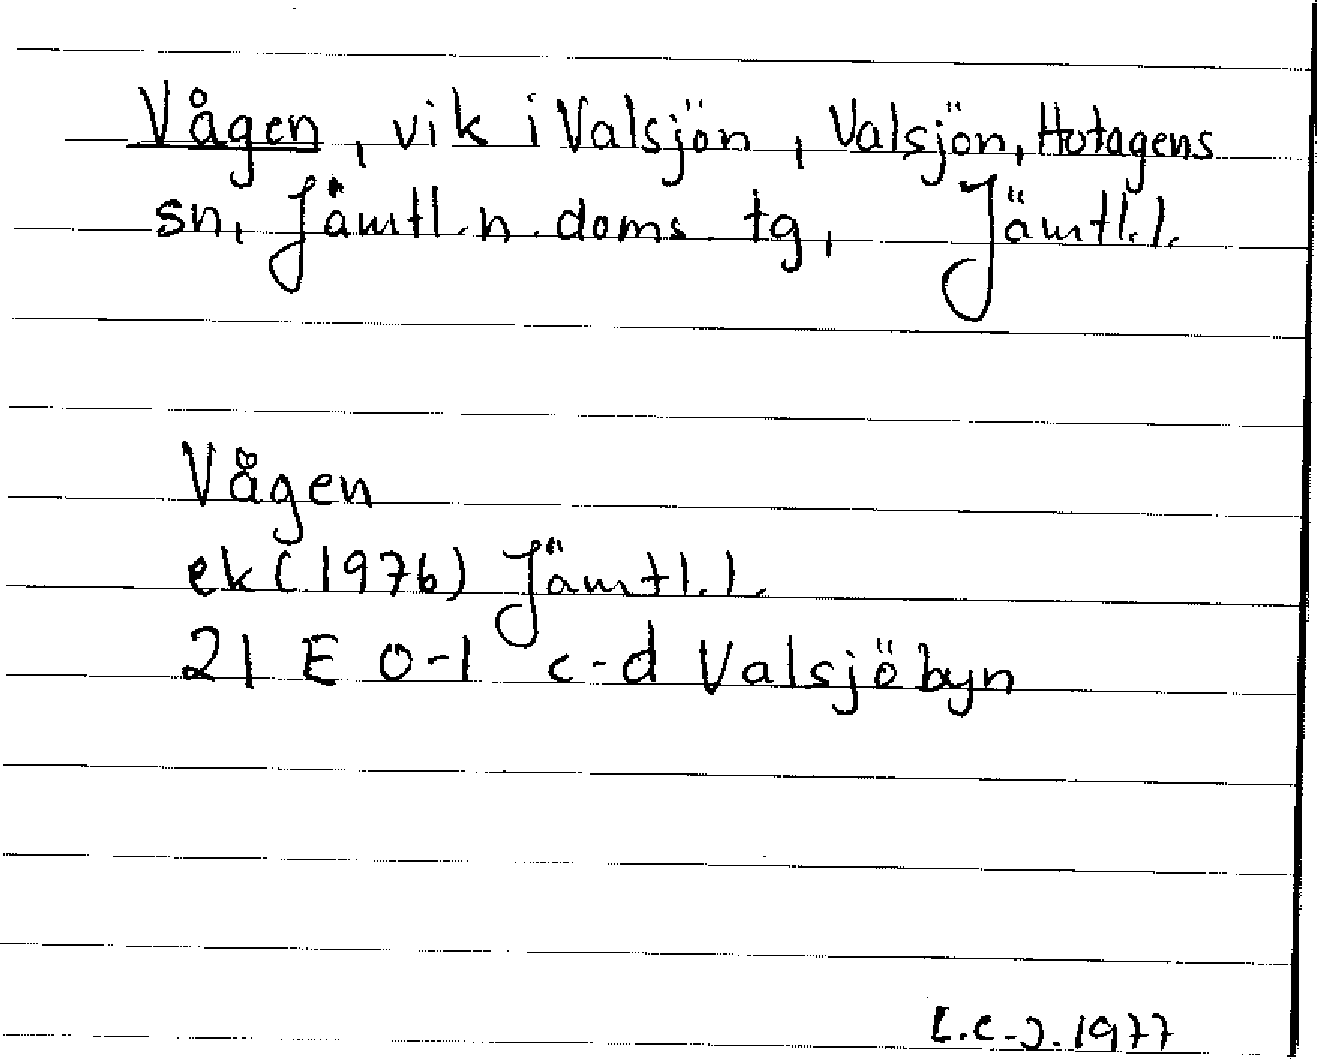 Vågen, vik i Valsjön, Valsjön, Hotagens
sn, Jämtl. n. doms tg, Jämtl. l.
Vågen
ek (1976) Jämtl. l.
21 E 0-1 c-d Valsjöbyn
L.C-J. 1977